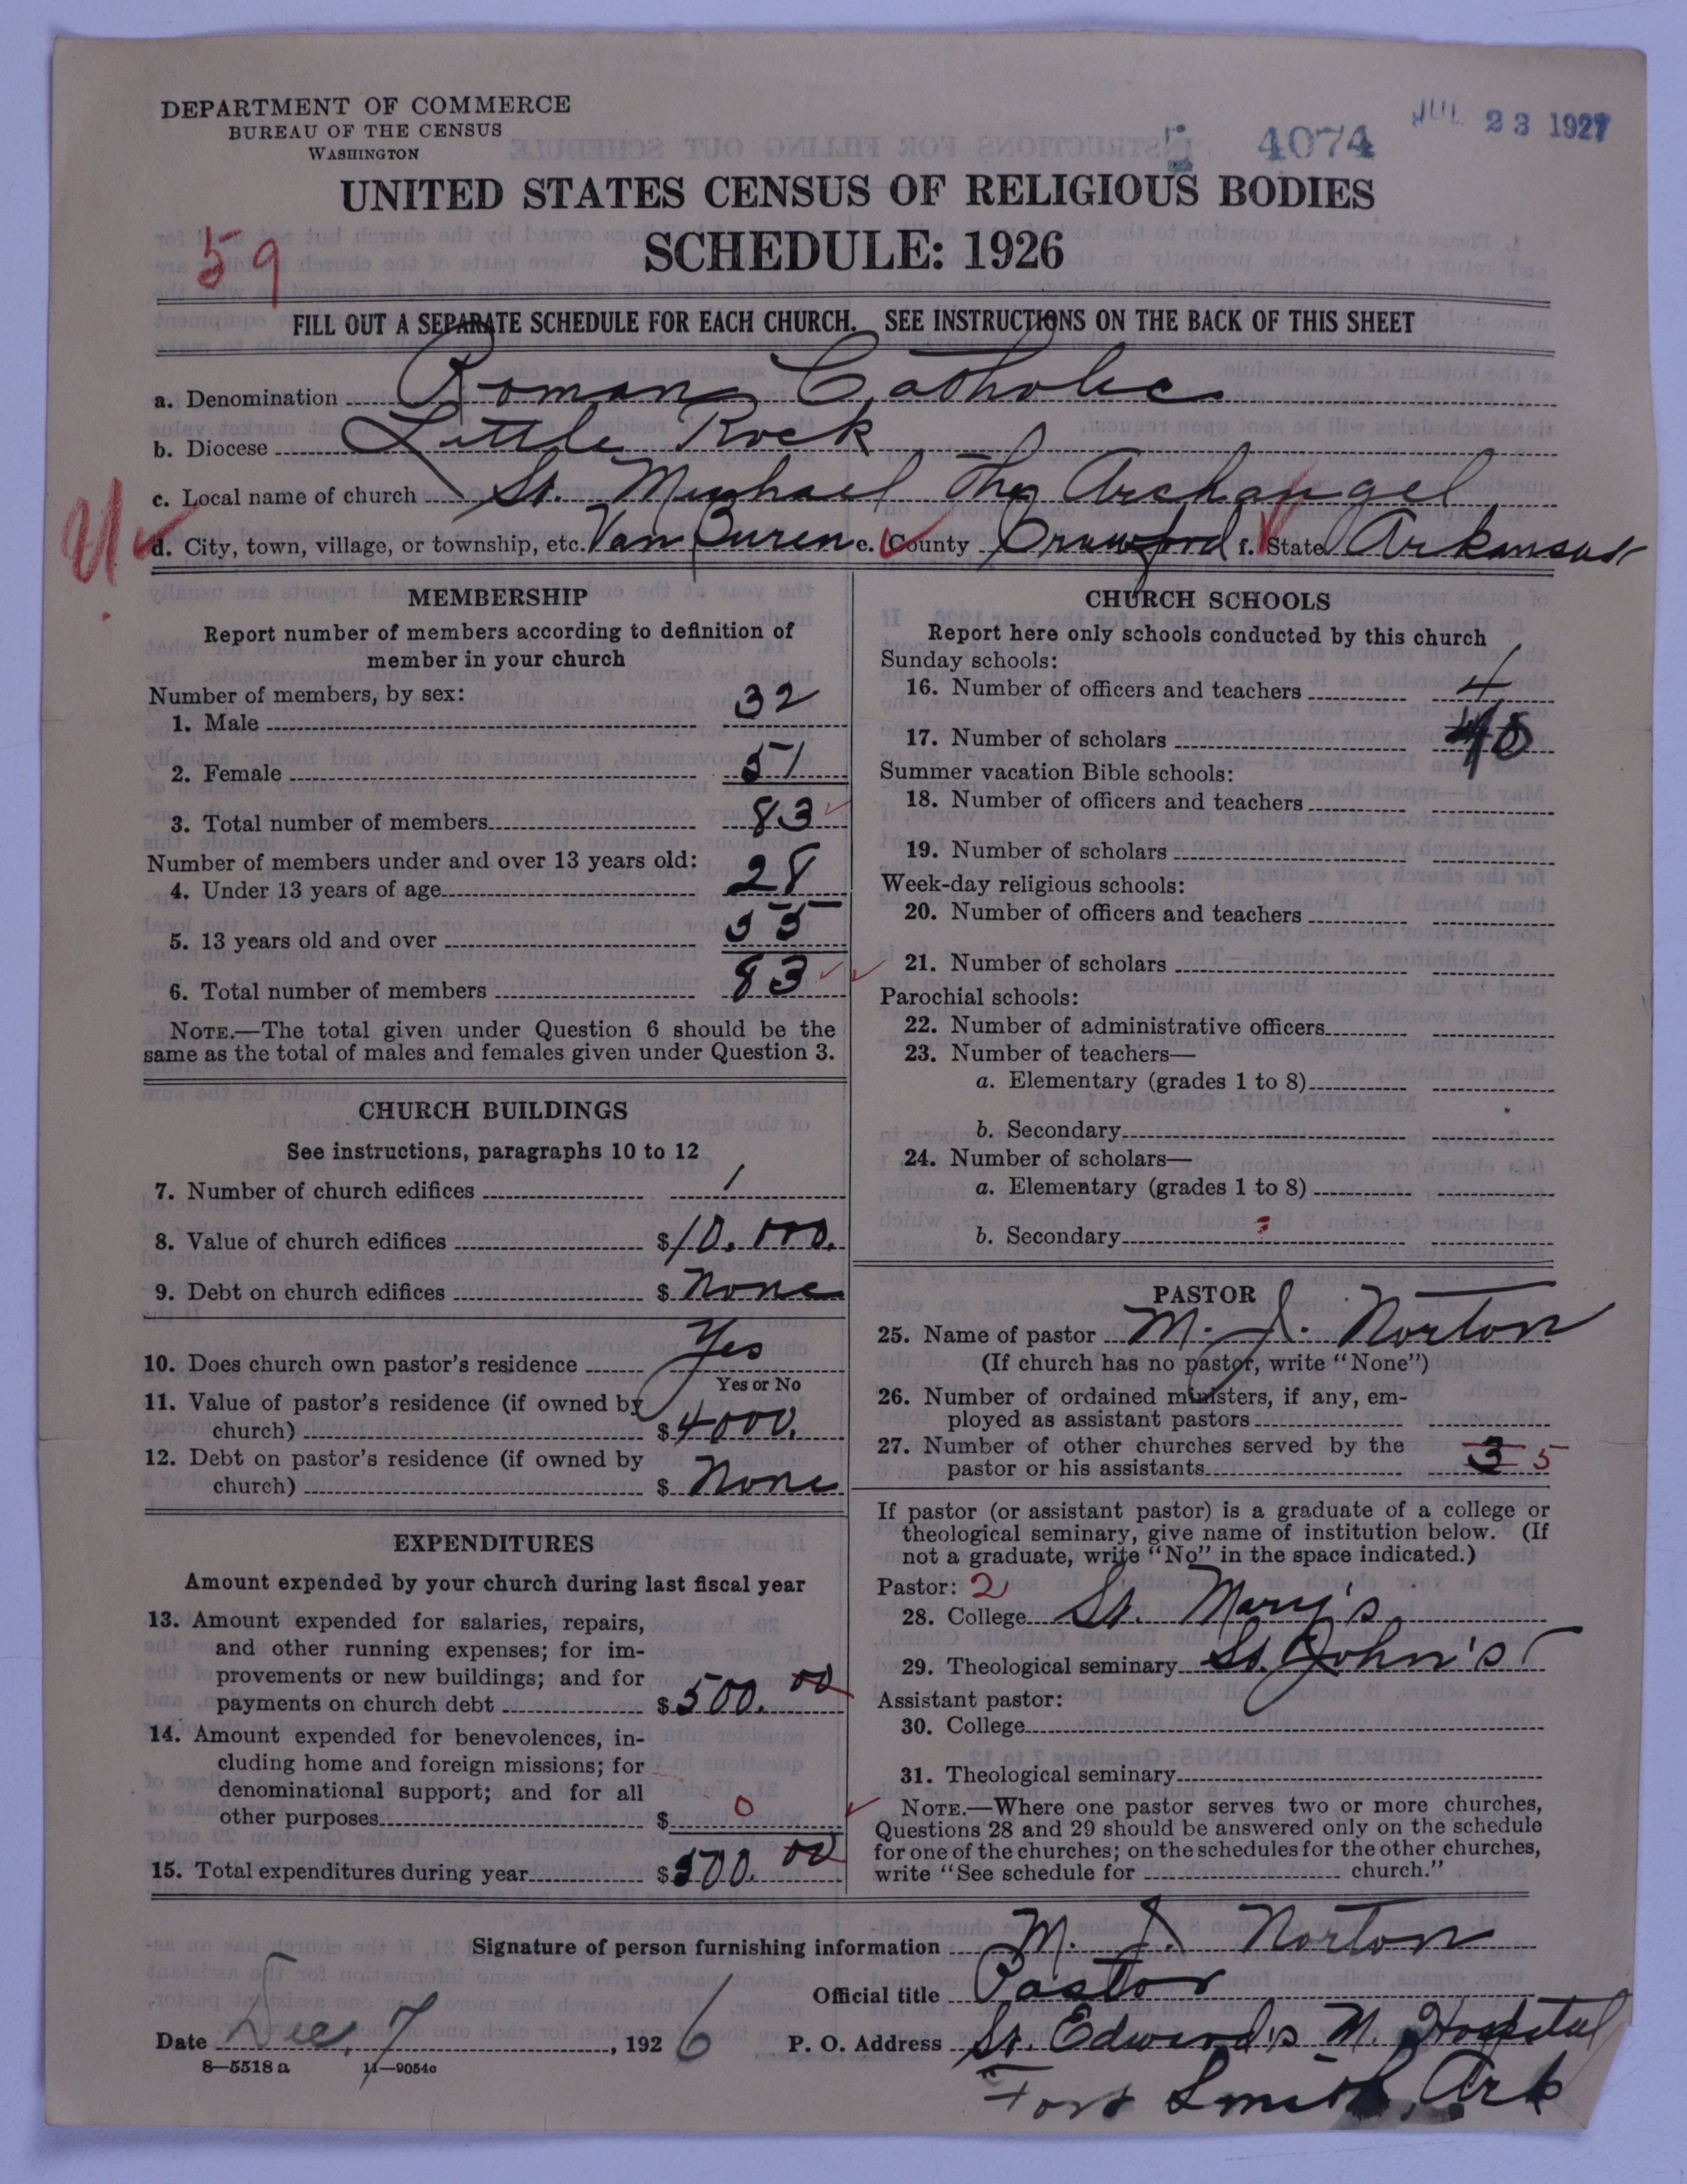 DEPARTMENT OF COMMERCE
BUREAU OF THE CENSUS
WASHINGTON
4074
JUL 23 1927
UNITED STATES CENSUS OF RELIGIOUS BODIES
59
SCHEDULE: 1926
FILL OUT A SEPARATE SCHEDULE FOR EACH CHURCH. SEE INSTRUCTIONS ON THE BACK OF THIS SHEET
a. Denomination Roman Catholic
b. Diocese Little Rock
c. Local name of church St. Michael The Archangel
d. City, town, village, or township, etc. Van Buren e. County Crawford f. State Arkansas
MEMBERSHIP
Report number of members according to definition of
member in your church
Number of members, by sex:
1. Male 32
2. Female 51
3. Total number of members 83
Number of members under and over 13 years old:
4. Under 13 years of age 28
5. 13 years old and over 55
6. Total number of members 83
NOTE.—The total given under Question 6 should be the
same as the total of males and females given under Question 3.
CHURCH BUILDINGS
See instructions, paragraphs 10 to 12
7. Number of church edifices 1
8. Value of church edifices $10.000.
9. Debt on church edifices $ None
10. Does church own pastor's residence Yes
Yes or No
11. Value of pastor's residence (if owned by
church) $4000.
12. Debt on pastor's residence (if owned by
church) $ None
EXPENDITURES
Amount expended by your church during last fiscal year
13. Amount expended for salaries, repairs,
and other running expenses; for im-
provements or new buildings; and for
payments on church debt $500.00
14. Amount expended for benevolences, in-
cluding home and foreign missions; for
denominational support; and for all
other purposes $ 0
15. Total expenditures during year $500.00
CHURCH SCHOOLS
Report here only schools conducted by this church
Sunday schools:
16. Number of officers and teachers 4
17. Number of scholars
Summer vacation Bible schools:
18. Number of officers and teachers
19. Number of scholars
Week-day religious schools:
20. Number of officers and teachers
21. Number of scholars
Parochial schools:
22. Number of administrative officers
23. Number of teachers—
a. Elementary (grades 1 to 8)
b. Secondary
24. Number of scholars—
a. Elementary (grades 1 to 8)
b. Secondary
PASTOR
25. Name of pastor M. J. Norton
(If church has no pastor, write "None")
26. Number of ordained ministers, if any, em-
ployed as assistant pastors
27. Number of other churches served by the
pastor or his assistants 3 5
If pastor (or assistant pastor) is a graduate of a college or
theological seminary, give name of institution below. (If
not a graduate, write "No" in the space indicated.)
Pastor: 2
28. College St. Mary's
29. Theological seminary St. John's
Assistant pastor:
30. College
31. Theological seminary
NOTE.—Where one pastor serves two or more churches,
Questions 28 and 29 should be answered only on the schedule
for one of the churches; on the schedules for the other churches,
write "See schedule for church."
Signature of person furnishing information M. J. Norton
Official title Pastor
Date Dec. 7, 1926 P. O. Address St. Edward's M. Hospital
8—5518a 11—9054c
Fort Smith, Ark